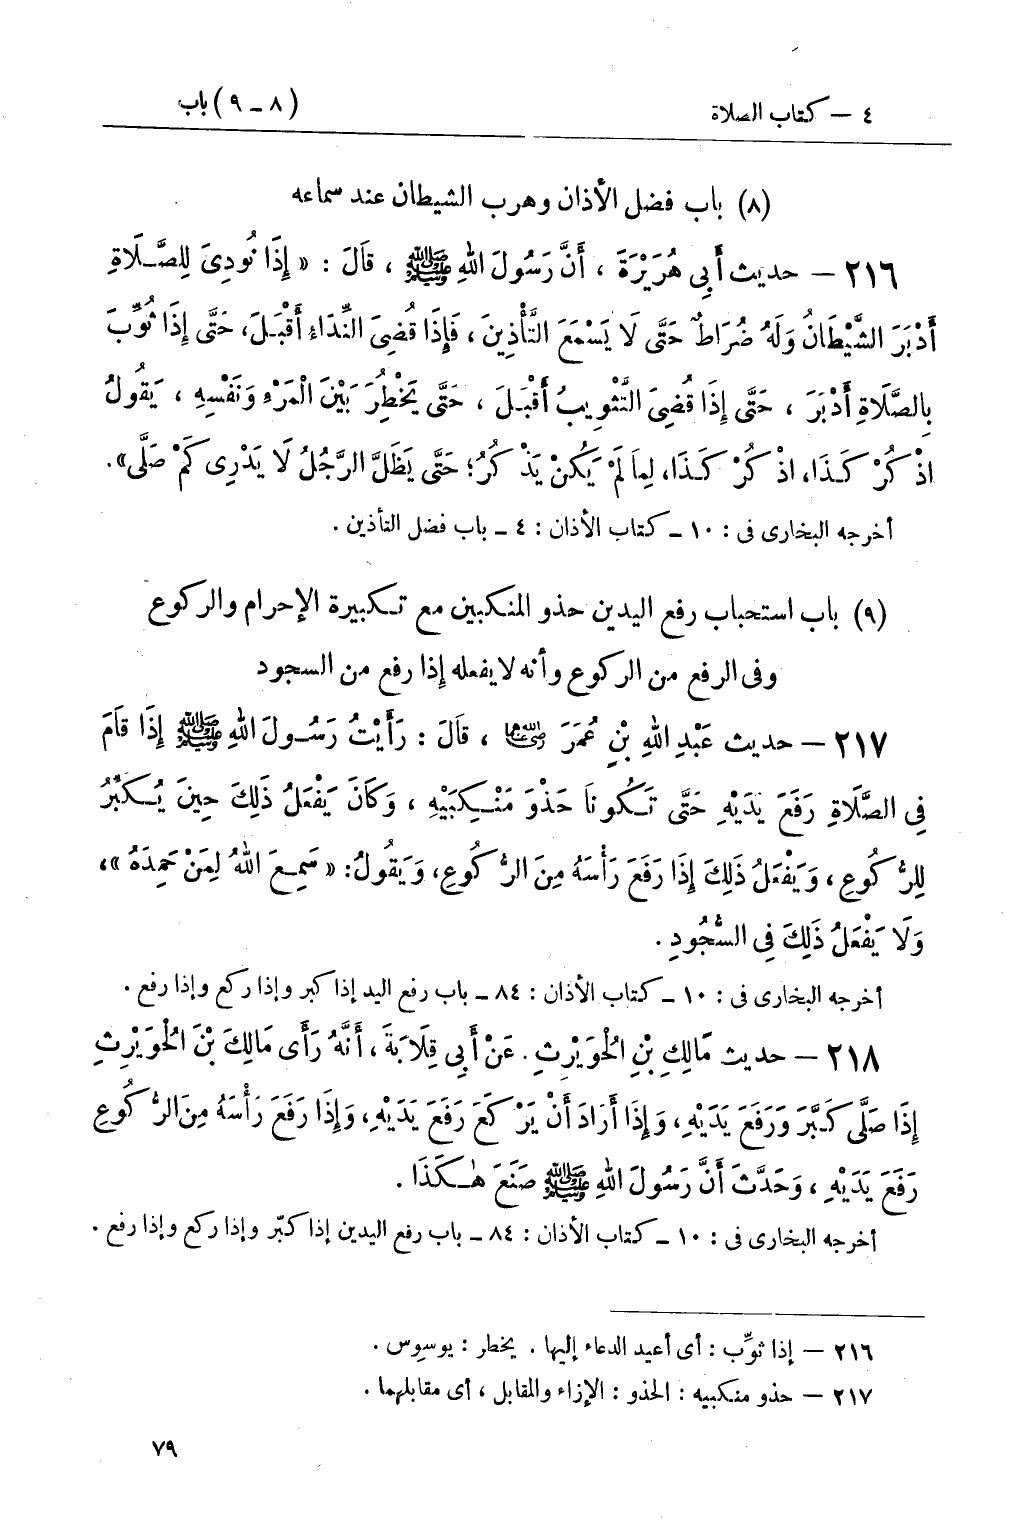 ٤ – كتاب الصلاة (٨ – ٩) باب
(٨) باب فضل الأذان وهرب الشيطان عند سماعه
٢١٦ – حديث أَبِي هُرَيْرَةَ ، أَنَّ رَسُولَ اللهِ ﷺ ، قَالَ : « إِذَا نُودِىَ لِلصَّلَاةِ
أَدْبَرَ الشَّيْطَانُ وَلَهُ ضُرَاطٌ حَتَّى لَا يَسْمَعَ التَّأْذِينَ ، فَإِذَا قُضِىَ النِّدَاءُ أَقْبَلَ، حَتَّى إِذَا ثُوِّبَ
بِالصَّلَاةِ أَدْبَرَ ، حَتَّى إِذَا قُضِىَ التَّثْوِيبُ أَقْبَلَ ، حَتَّى يَخْطُرَ بَيْنَ الْمَرْءِ وَنَفْسِهِ ، يَقُولُ
اذْكُرْ كَذَا، اذْكُرْ كَذَا، لِمَا لَمْ يَكُنْ يَذْكُرُ؛ حَتَّى يَظَلَّ الرَّجُلُ لَا يَدْرِى كَمْ صَلَّى».
أخرجه البخارى فى : ١٠ – كتاب الأذان : ٤ – باب فضل التأذين .
(٩) باب استحباب رفع اليدين حذو المنكبين مع تكبيرة الإحرام والركوع
وفى الرفع من الركوع وأنه لا يفعله إذا رفع من السجود
٢١٧ – حديث عَبْدِ اللهِ بْنِ عُمَرَ رضي الله عنهما ، قَالَ : رَأَيْتُ رَسُولَ اللهِ ﷺ إِذَا قَامَ
فِى الصَّلَاةِ رَفَعَ يَدَيْهِ حَتَّى تَكُونَا حَذْوَ مَنْكِبَيْهِ ، وَكَانَ يَفْعَلُ ذَلِكَ حِينَ يُكَبِّرُ
لِلرُّكُوعِ ، وَيَفْعَلُ ذَلِكَ إِذَا رَفَعَ رَأْسَهُ مِنَ الرُّكُوعِ، وَيَقُولُ: « سَمِعَ اللهُ لِمَنْ حَمِدَهُ »،
وَلَا يَفْعَلُ ذَلِكَ فِى السُّجُودِ .
أخرجه البخارى فى : ١٠ – كتاب الأذان : ٨٤ – باب رفع اليد إذا كبر وإذا ركع وإذا رفع .
٢١٨ – حديث مَالِكِ بْنِ الْحُوَيْرِثِ . عَنْ أَبِي قِلَابَةَ ، أَنَّهُ رَأَى مَالِكَ بْنَ الْحُوَيْرِثِ
إِذَا صَلَّى كَبَّرَ وَرَفَعَ يَدَيْهِ، وَإِذَا أَرَادَ أَنْ يَرْكَعَ رَفَعَ يَدَيْهِ، وَإِذَا رَفَعَ رَأْسَهُ مِنَ الرُّكُوعِ
رَفَعَ يَدَيْهِ ، وَحَدَّثَ أَنَّ رَسُولَ اللهِ ﷺ صَنَعَ هٰكَذَا .
أخرجه البخارى فى : ١٠ – كتاب الأذان : ٨٤ – باب رفع اليدين إذا كبّر وإذا ركع وإذا رفع .
٢١٦ – إذا ثوِّب : أى أعيد الدعاء إليها . يخطر : يوسوس .
٢١٧ – حذو منكبيه : الحذو : الإزاء والمقابل ، أى مقابلهما .
٧٩